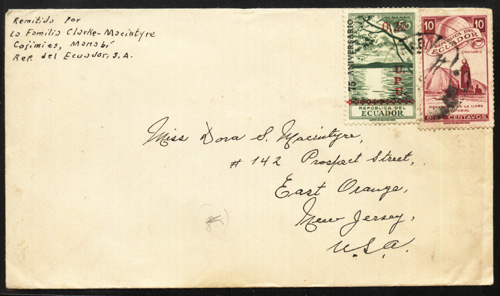 Remitido Por
La Familia Clarke-Macintyre
Cojimíes, Manabí
Rep. del Ecuador, S.A.
75 ANIVERSARIO
REPUBLICA DEL
ECUADOR
10 10
ECUADOR
CENTAVOS
Miss Dora S. Macintyre,
# 142 Prospect Street,
East Orange,
New Jersey,
U.S.A.